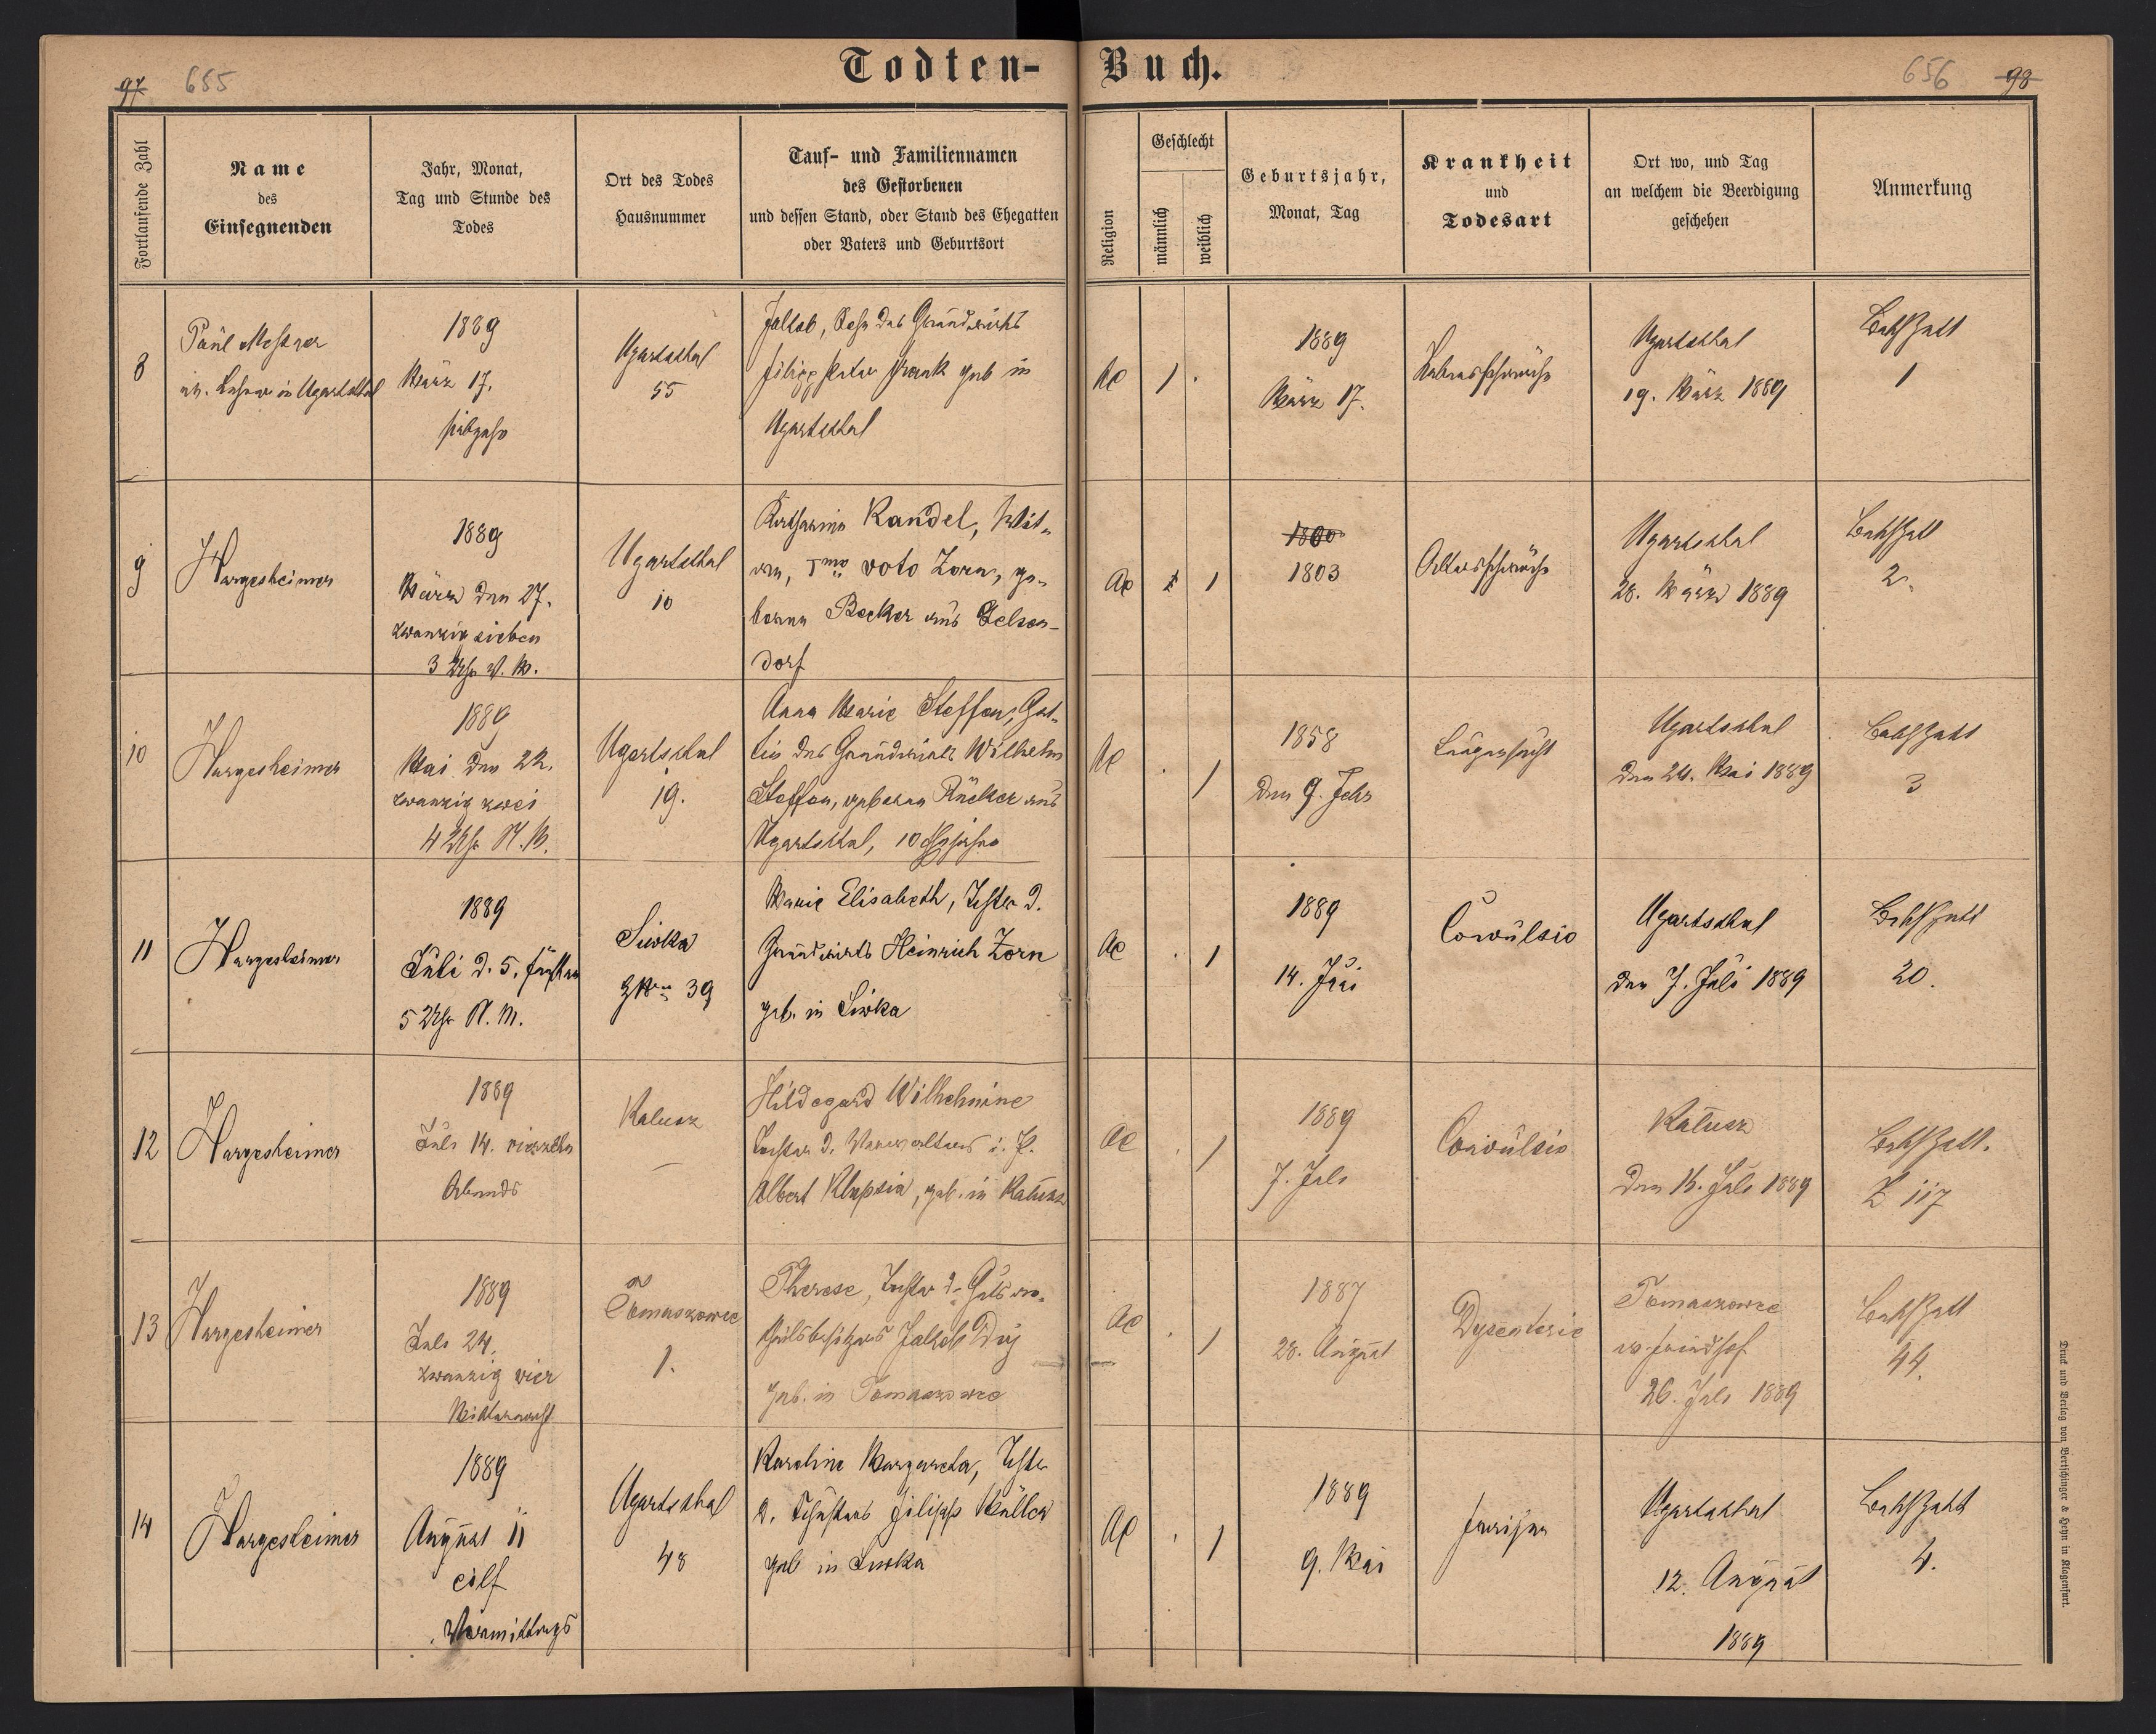 Todten-Buch.
97 655
656 98
Fortlaufende Zahl
Name
des
Einsegnenden
Jahr, Monat,
Tag und Stunde des
Todes
Ort des Todes
Hausnummer
Tauf- und Familiennamen
des Gestorbenen
und dessen Stand, oder Stand des Ehegatten
oder Vaters und Geburtsort
Religion
Geschlecht
männlich
weiblich
Geburtsjahr,
Monat, Tag
Krankheit
und
Todesart
Ort wo, und Tag
an welchem die Beerdigung
geschehen
Anmerkung
8
Paul Metzger
ev. Lehrer in Ugartsthal
1889
März 17.
siebzehn
Ugartsthal
55
Jakob, Sohn des Grundwirths
Filipp Peter Frank geb in
Ugartsthal
AC
1
1889
März 17.
Lebensschwäche
Ugartsthal
19. März 1889
1
9
Hargesheimer
1889
März den 27.
zwanzig sieben
3 Uhr V. M.
Ugartsthal
10
Katharina Kandel, Wit-
we, Imo voto Zorn, ge-
borne Becker aus Gelsen-
dorf
AC
1
1800
1803
Altersschwäche
Ugartsthal
28. März 1889
2.
10
Hargesheimer
1889
Mai den 22.
zwanzig zwei
4 Uhr N. M.
Ugartsthal
19.
Anna Marie Steffen, Gat-
tin des Grundwirths Wilhelm
Steffen, geborne Rücker aus
Ugartsthal, 10
AC
1
1858
den 9. Febr
Ugartsthal
den 24. Mai 1889
3
11
Hargesheimer
1889
Juli d. 5. fünften
5 Uhr N. M.
Siwka
39
Marie Elisabeth, Tochter d.
Grundwirths Heinrich Zorn
geb. in Siwka
AC
1
1889
14. Juni
Convulsio
Ugartsthal
den 7. Juli 1889
20.
12
Hargesheimer
1889
Juli 14. vierzehn
Abends
Kalusz
Hildegard Wilhelmine
Tochter d. Verwalters i. P.
Albert Klapsia, geb. in Kalusz
AC
1
1889
7. Juli
Convulsio
Kalusz
den 16. Juli 1889
Z 117
13
Hargesheimer
1889
Juli 24.
zwanzig vier
Mitternacht
Tomaszowce
1.
Therese, Tochter d.
Gutsbesitzers Jakob
geb. in Tomaszowce
AC
1
1887
28. August
Dysenterie
Tomaszowce
Friedhof
26. Juli 1889
44.
14
Hargesheimer
1889
August 11
eilf
Vormittags
Ugartsthal
48
Karoline Margareta, Tochter
d. Schusters Filipp Müller
geb in Siwka
AC
1
1889
9. Mai
Fraisen
Ugartsthal
12. August
1889
4.
Druck und Verlag von Bertschinger & Heyn in Klagenfurt.